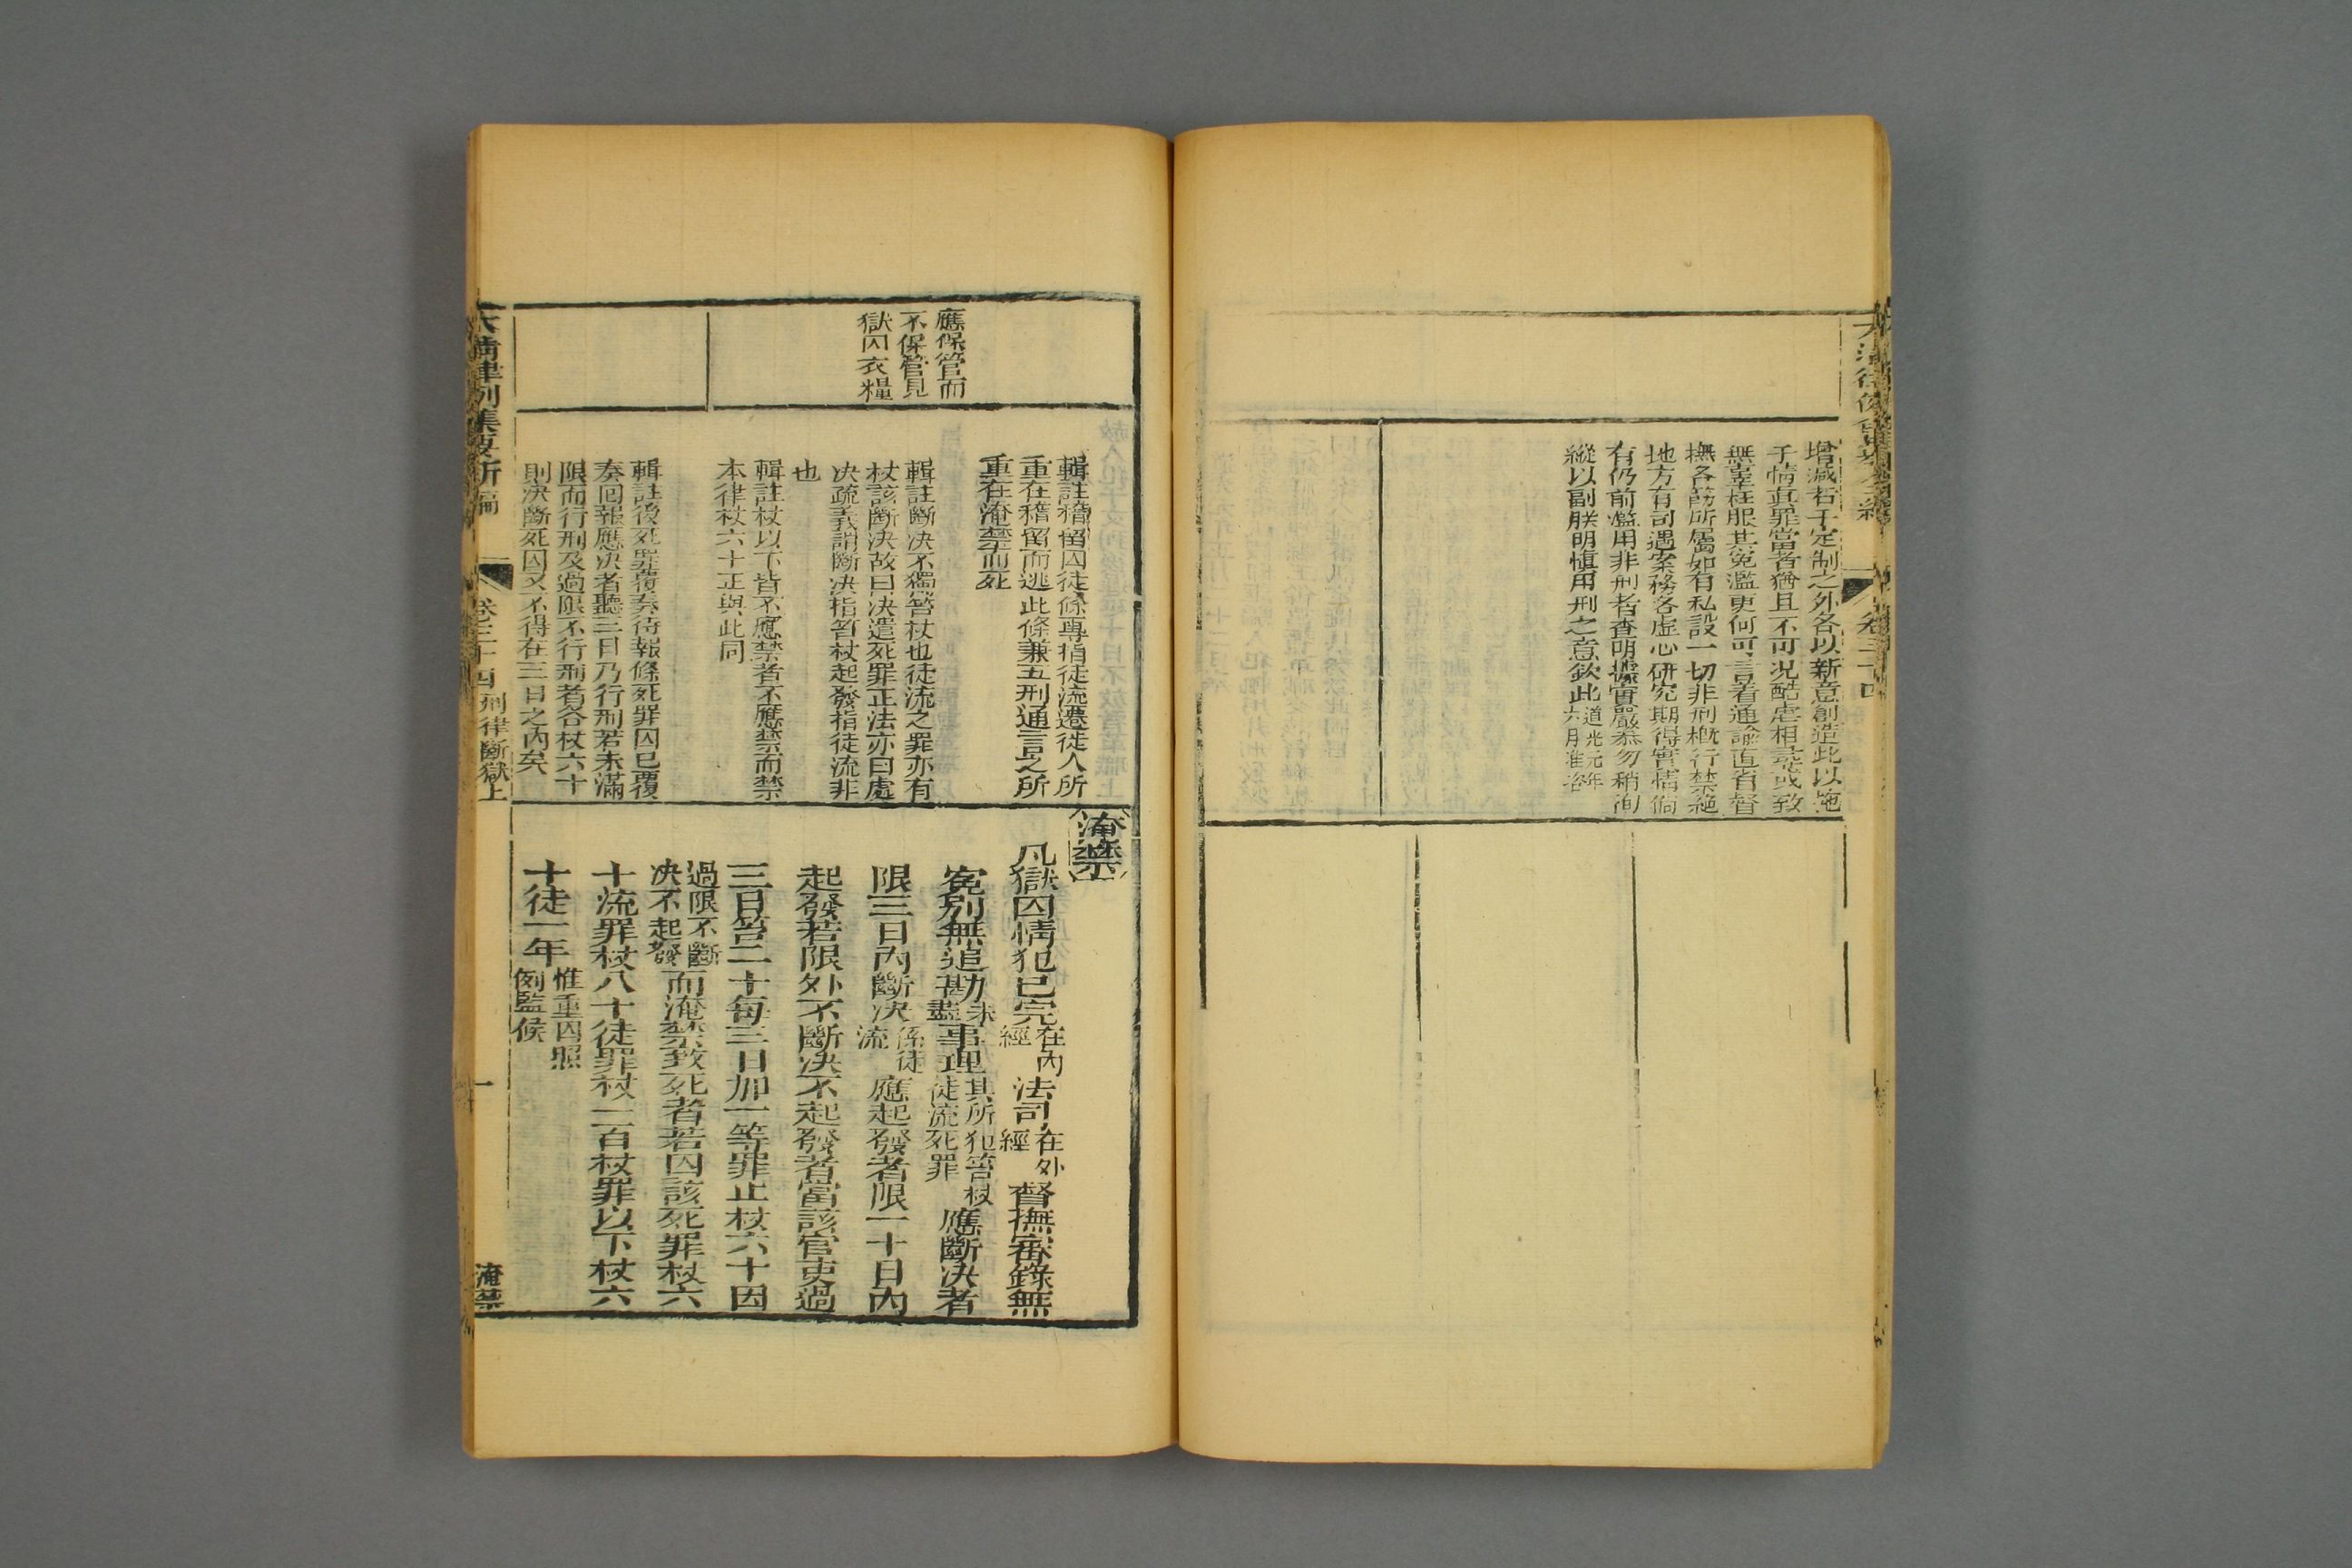 增減若干定制之外各以新意創造此以施
于情真罪當者猶且不可况酷虐相忒或致
無辜枉服其冤濫更何可言着通諭直省督
撫各飭所屬如有私設一切非刑概行禁絕
地方有司遇案務各虛心研究期得實情倘
有仍前濫用非刑者查明據實嚴叅勿稍徇
縱以副朕明慎用刑之意欽此道光元年
六月准咨
應保管而
不保管見
獄囚衣糧
輯註稽留囚徒條專指徒流遷徙人所
重在稽留而逃此條兼五刑通言之所
重在淹禁而死
輯註斷决不獨笞杖也徒流之罪亦有
杖該斷决故曰决遣死罪正法亦曰處
决疏義謂斷决指笞杖起發指徒流非
也
輯註杖以下皆不應禁者不應禁而禁
本律杖六十正與此同
輯註後死罪覆奏待報條死罪囚已覆
奏回報應决者聽三日乃行刑若未滿
限而行刑及過限不行刑者各杖六十
則决斷死囚又不得在三日之內矣
淹禁
凡獄囚情犯已完在內經法司在外經督撫審錄無
冤別無追勘未盡事理其所犯笞杖徒流死罪應斷决者
限三日內斷决係徒流應起發者限一十日內
起發若限外不斷决不起發者當該官吏過
三日笞二十每三日加一等罪止杖六十因
過限不斷决不起發而淹禁致死者若囚該死罪杖六
十流罪杖八十徒罪杖一百杖罪以下杖六
十徒一年惟重囚照例監候
大清律例集要新編
卷三十四 刑律斷獄上
一
淹禁